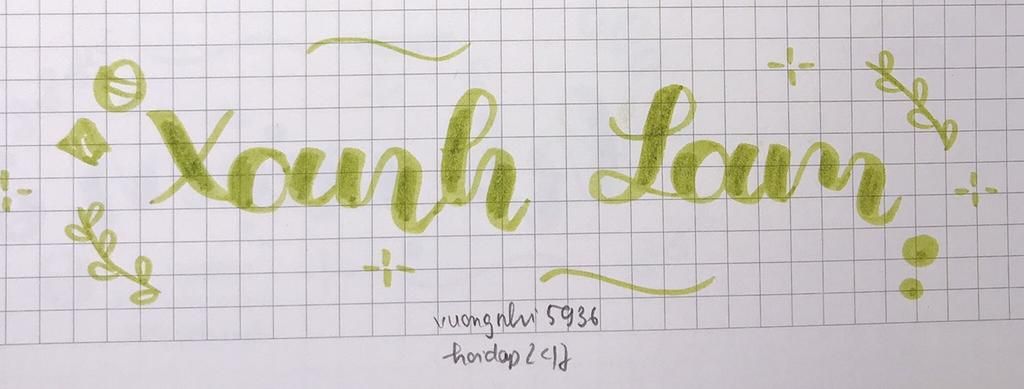 Xanh Lam
vuongnhi 5936
hoidap247